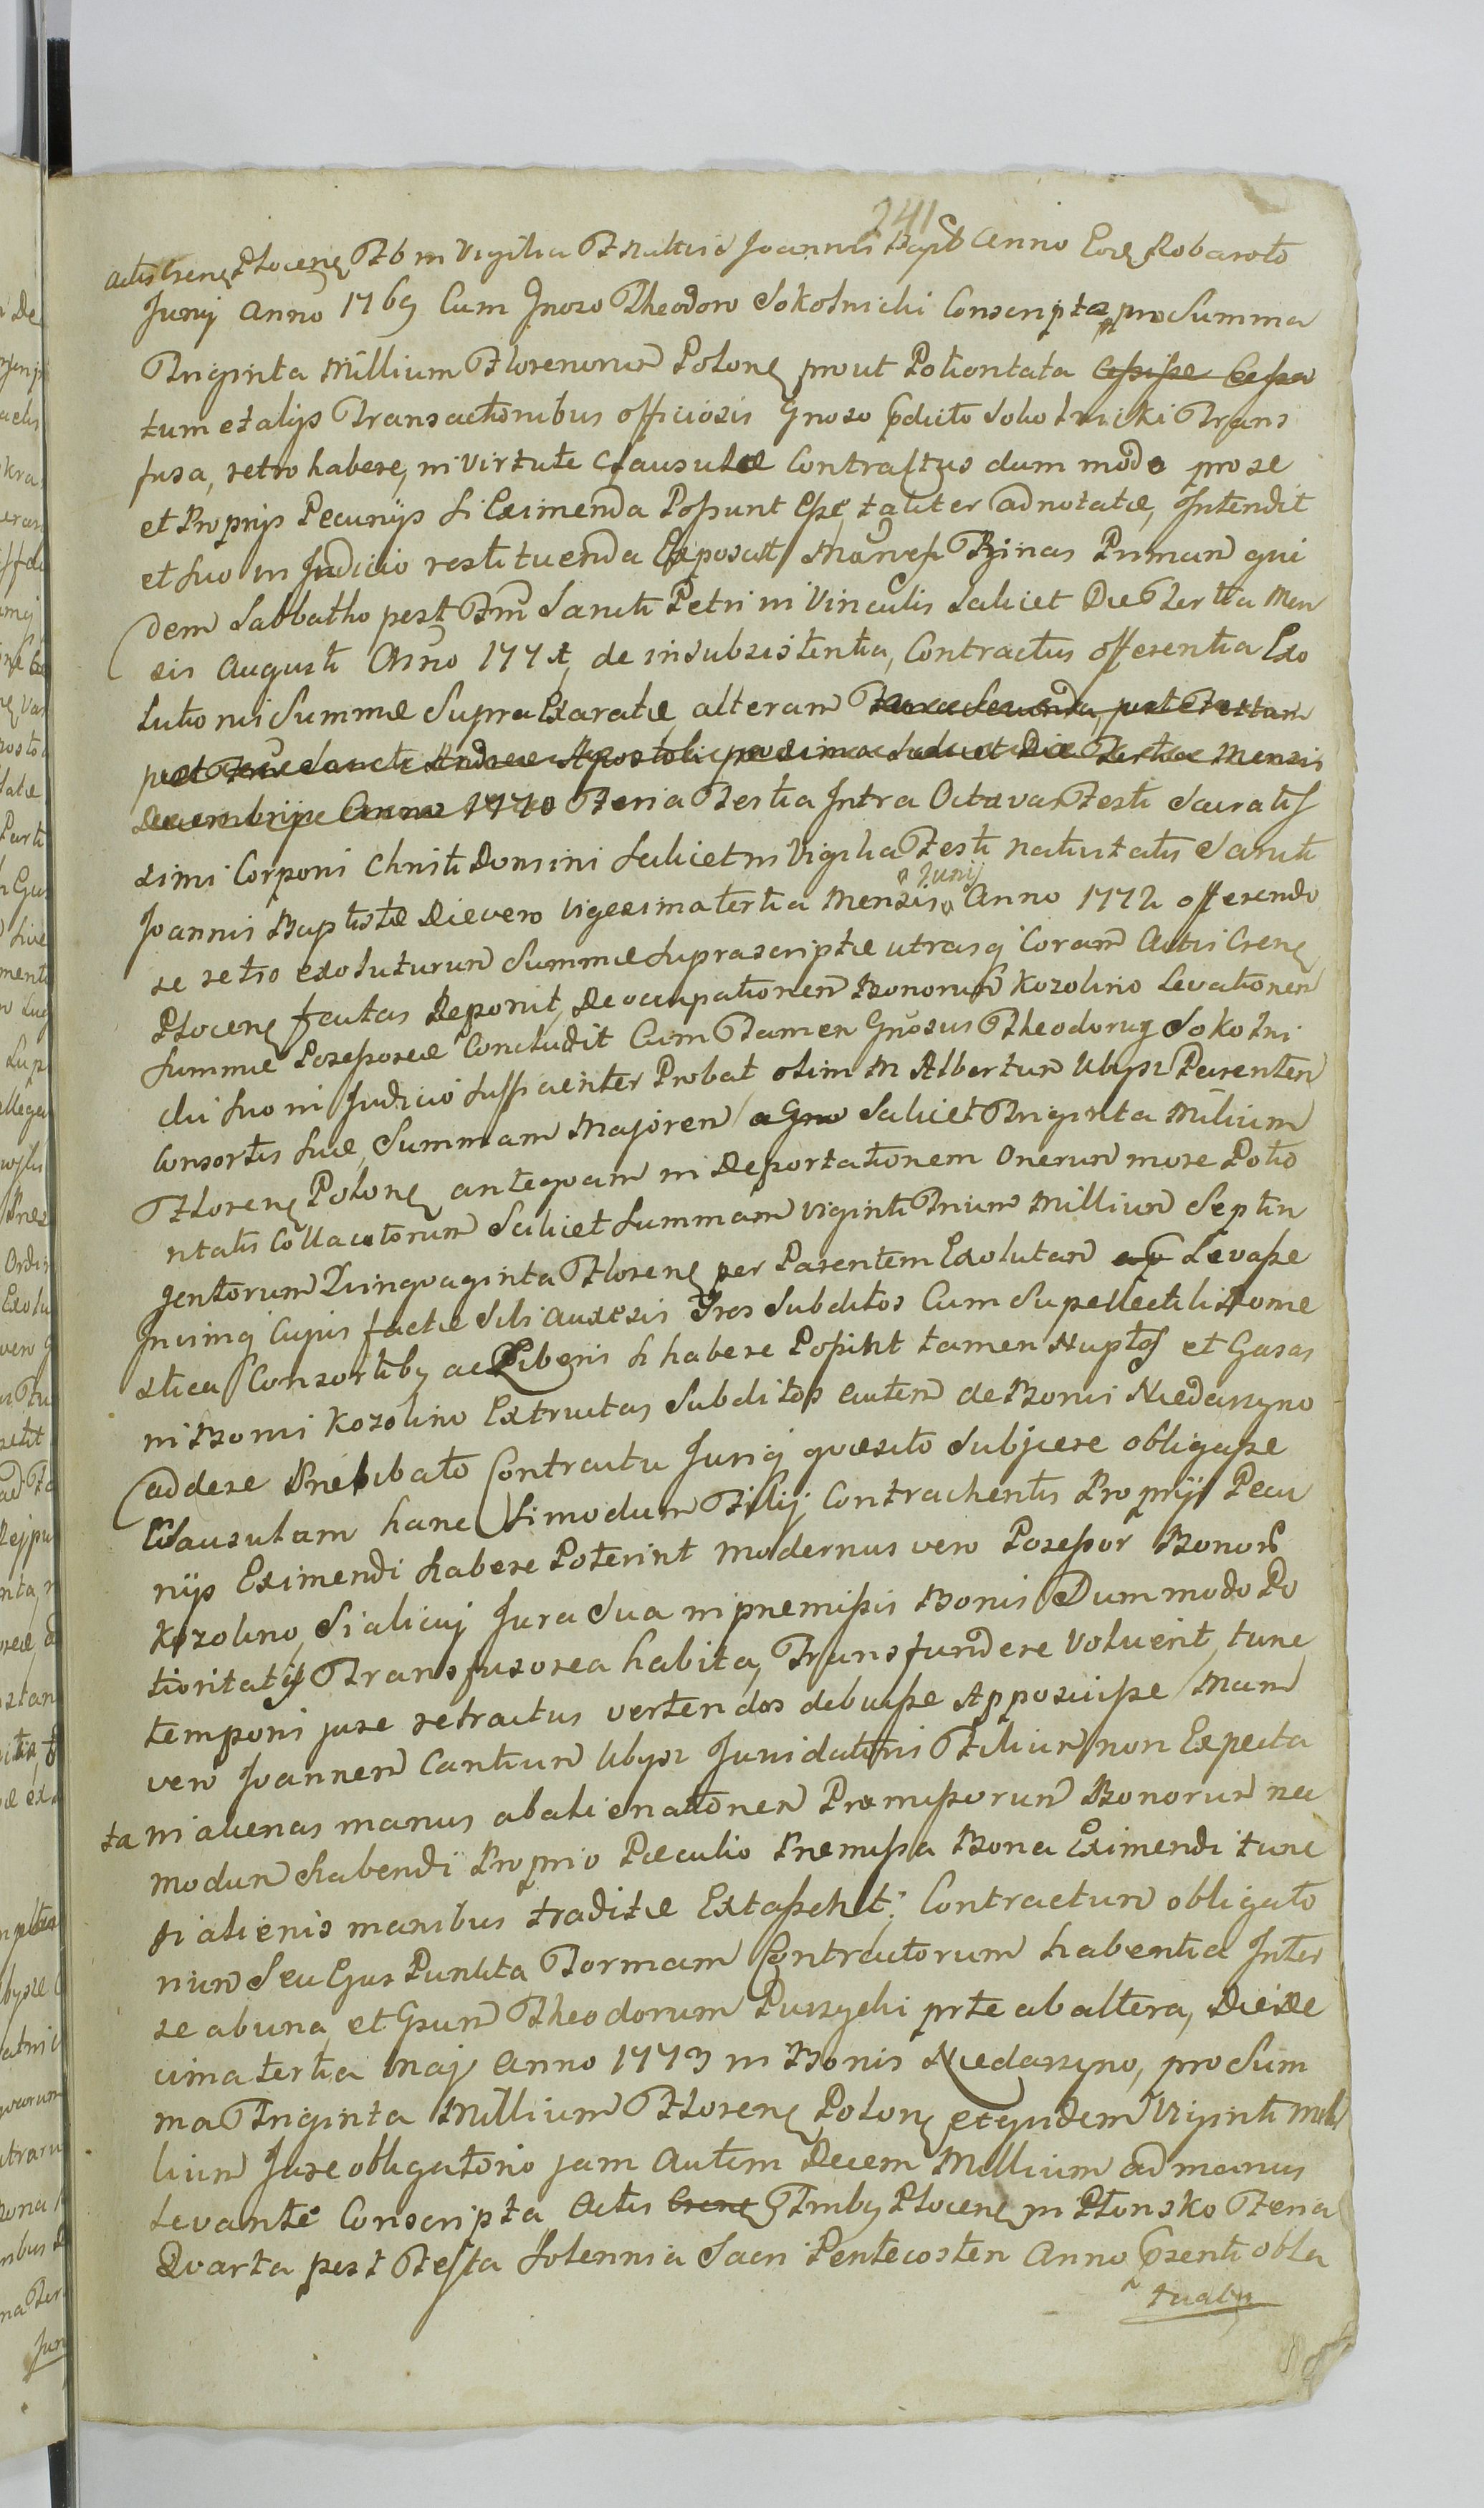 241
Actis Crenɇ Plocenɇ Fb in Vigilia F Nattis S Joannis Bapt Anno Eodɇ Robaroto
Junij Anno 1769 Cum Gnoso Theodoro Sokolnicki Conscripta pro Summa
Triginta Millium Florenorum Polonɇ prout Potioritata
tum et alijs Transactionibus officiosis Gnoso Pdicto Sokolnicki Trans
fusa, retro habere, in virtute Clausulæ Contractus dum modo pro se
et Proprijs Pecunijs si Eximenda Possunt Esse, taliter adnotatæ, Intendit
et suo in Judicio restituenda Exposcit Manifes Binas Primam qui
dem Sabbatho post Ftm Sancti Petri in Vinculis Scilicet Die Tertia Men
sis Augusti Anno 1771, de insubsistentia, Contractus offerentia Exo
lutionis Summæ Supra Exaratæ, alteram Feria Secunda, post Festum
post Ftm Sancti Andreæ Apostoli proxima Scilicet Die Tertia Mensis
Decembris Anno 1770 Feria Tertia Intra Octavas Festi Sacratis
simi Corporis Christi Domini Scilicet in Vigilia Festi Nativitatis Sancti
Joannis Baptistæ Die vero Vigesima tertia Mensis Junij Anno 1772 offerendo
se retro exoluturum Summæ Suprascriptæ utrasq Coram Actis Crenɇ
Plocenɇ factas Deponit, Deoccupationem Bonorum Kozolino Levationem
Summæ Possessoreæ Concludit Cum Tamen Gnosus Theodorus Sokolni
cki suo in Judicio Sufficienter Probat olim M Albertum Ubysz Parentem
Consortis suæ, Summam Majorem a Gno Scilicet Triginta Milium
Florenɇ Polonɇ antequam in Deportationem Onerum more Potio
ritatis Collocatorum Scilicet Summam Viginti Trium Millium Septin
gentorum Quinquaginta Florenɇ per Parentem Exolutam Levasse
Insimq Cujus factæ Sibi auxesis Tres Subditos Cum Supellectili Dome
stica Consortibɇ ac Liberis si habere Possint tamen Nuptos et Casas
in Bonis Kozolino Extructas Subditos autem de Bonis Niedarzyno
addere Prælibato Contractu Jurisq quæsito Subjicere obligasse
Clausulam hanc Si modum Filij Contrahentis Proprijs Pecu
nijs Eximendi habere Poterint Modernus vero Possessor Bonor
Kozolino, Si alicuj Jura Sua in præmissis Bonis Dummodo Po
tioritatis Transfusorea habita, Transfundere Voluerit, tunc
temporis jure retractus vertendos debuisse Apposuisse Mum
vero Joannem Cantium Ubysz Juridationis Filium non Expecta
ta in alienas manus abalienationem Præmissorum Bonorum nec
modum habendi Proprio Peculio Præmissa Bona Eximendi tunc
si alienis manibus traditæ Extassent: Contractum obligato
rium Seu Ejus Puncta Formam Contractorum habentia Inter
se ab una, et Gsum Theodorum Puszycki prte ab altera, Die De
cima tertia Maj Anno 1773 in Bonis Niedarzyno, pro Sum
ma Triginta Millium Florenɇ Polonɇ et quidem Viginti Mil
lium Jure obligatorio jam Autem Decem Millium ad manus
Levante Conscripta Actis Crenɇ Ftribɇ Plocenɇ in Płonsko Feria
Quarta post Festa Solennia Sacri Pentecosten Anno Psenti obla